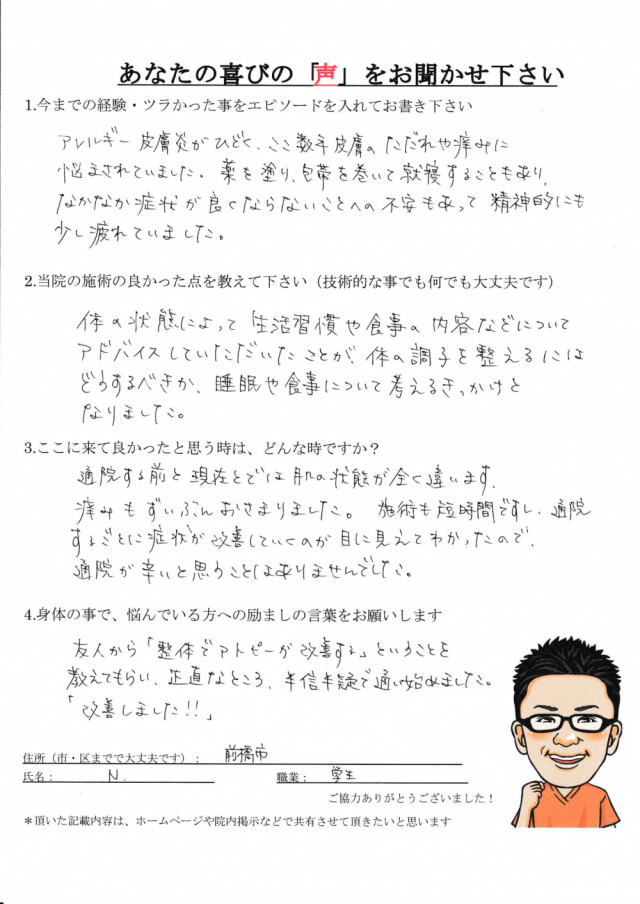 あなたの喜びの「声」をお聞かせ下さい
1.今までの経験・ツラかった事をエピソードを入れてお書き下さい
アレルギー皮膚炎がひどく、ここ数年皮膚のただれや痒みに
悩まされていました。薬を塗り、包帯を巻いて就寝することもあり、
なかなか症状が良くならないことへの不安もあって精神的にも
少し疲れていました。
2.当院の施術の良かった点を教えて下さい（技術的な事でも何でも大丈夫です）
体の状態によって生活習慣や食事の内容などについて
アドバイスしていただいたことが、体の調子を整えるには
どうするべきか、睡眠や食事について考えるきっかけと
なりました。
3.ここに来て良かったと思う時は、どんな時ですか？
通院する前と現在とでは肌の状態が全く違います。
痒みもずいぶんおさまりました。施術も短時間ですし、通院
するごとに症状が改善していくのが目に見えてわかったので、
通院が辛いと思うことはありませんでした。
4.身体の事で、悩んでいる方への励ましの言葉をお願いします
友人から「整体でアトピーが改善する」ということを
教えてもらい、正直なところ、半信半疑で通い始めました。
「改善しました!!」
住所（市・区までで大丈夫です）： 前橋市
氏名： N. 職業： 学生
ご協力ありがとうございました！
＊頂いた記載内容は、ホームページや院内掲示などで共有させて頂きたいと思います